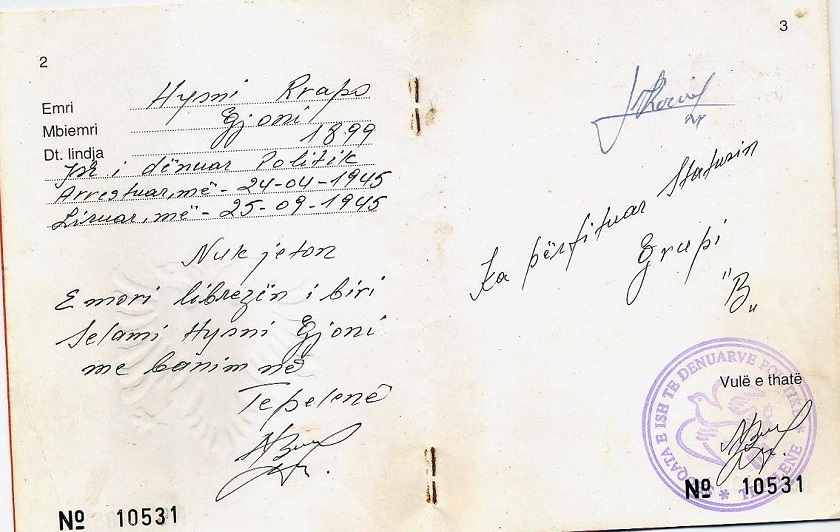 2
Emri Hysni Rrapo
Mbiemri Gjoni
Dt. lindja 1899
ish i dënuar Politik
Arrestuar, më - 24-04-1945
Liruar, më - 25-09-1945
Nuk jeton
E mori librezën i biri
Selami Hysni Gjoni
me banim në
Tepelenë
Nº 10531
3
Ka përfituar Statusin
Grupi
"B"
Vulë e thatë
QATA E ISH TE DENUARVE POLITIKE
TEPELENE
Nº 10531